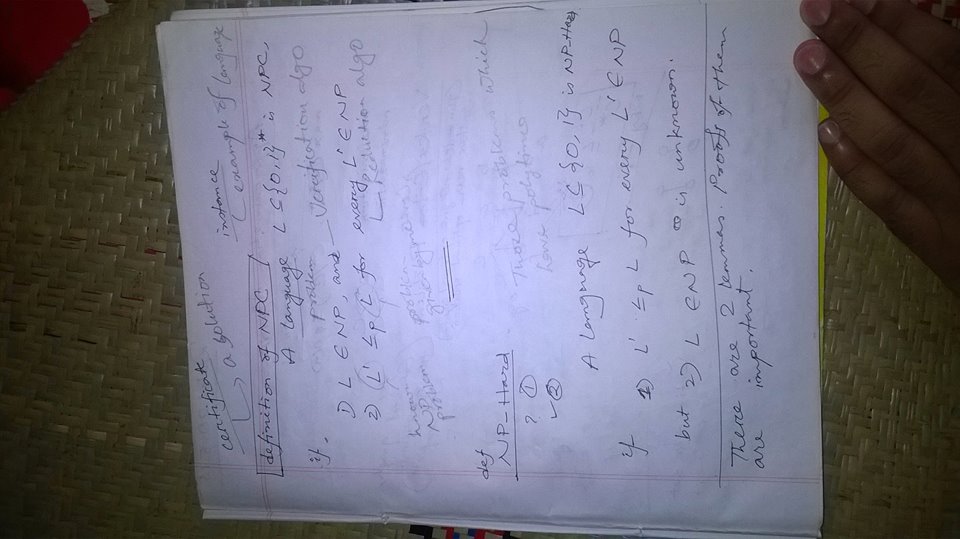 certificate
↳ a solution
instance
↳ example of language
definition of NPC
A language L ⊆ {0,1}* is NPC,
problem
if,
1) L ∈ NP, and — verification algo
2) L' ≤p L for every L' ∈ NP
↳ reduction algo
known NP problem
problem given
def
NP-Hard
? ①
✓ ②
Those problems which
have polytime
A language L ⊆ {0,1} is NP-Hard
if 1) L' ≤p L for every L' ∈ NP
but 2) L ∈ NP is unknown.
There are 2 lemmas. Proofs of them
are important.